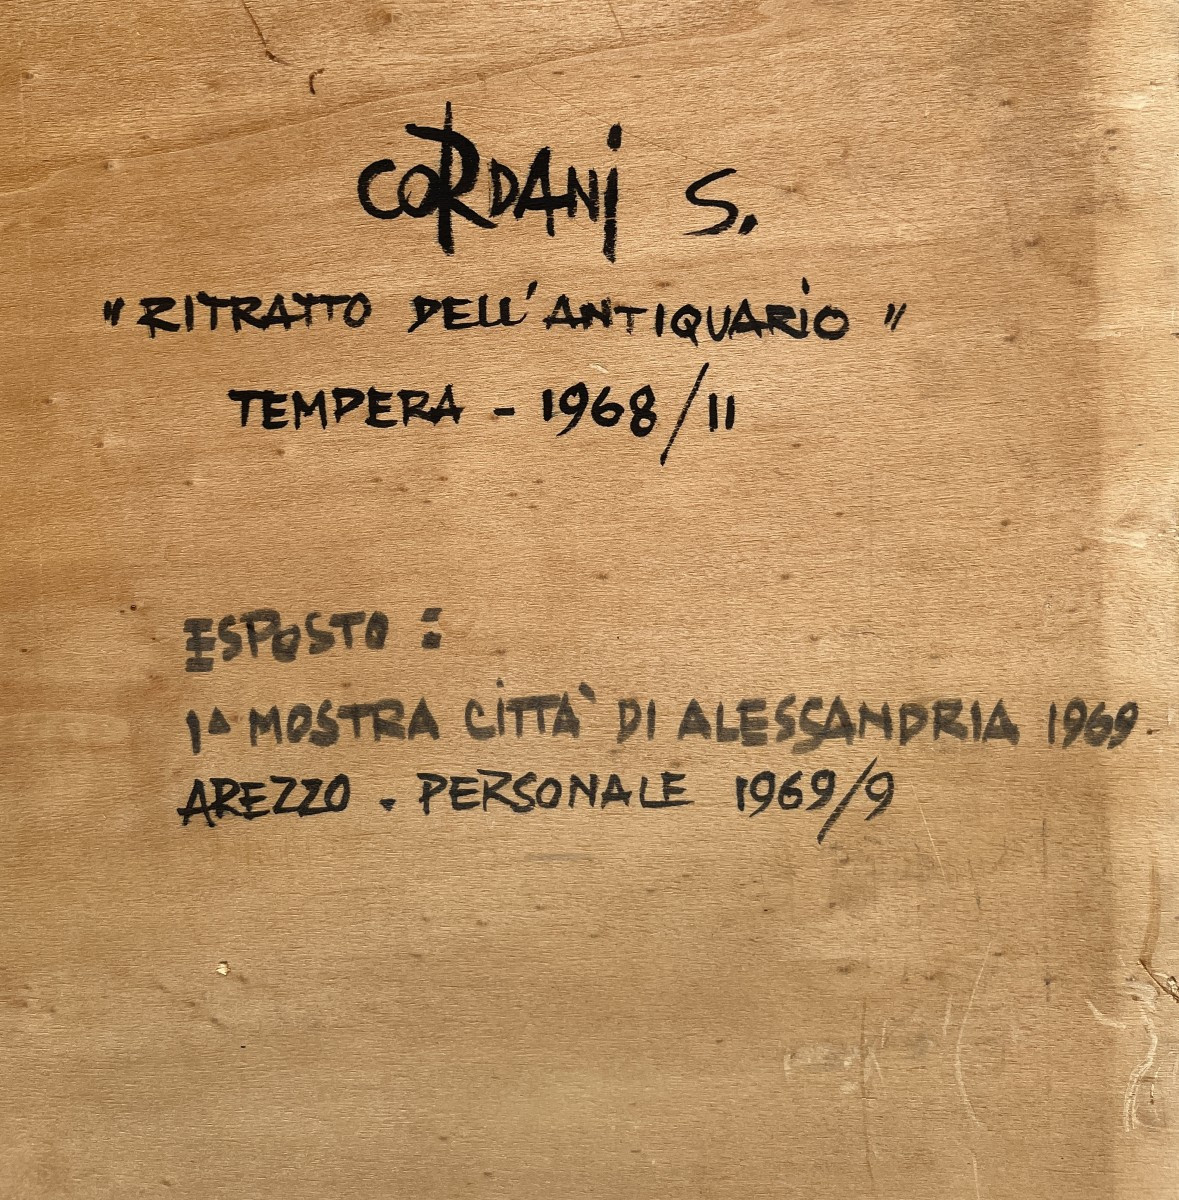 CORDANi S.
"RITRATTO DELL'ANTIQUARIO"
TEMPERA - 1968/11
ESPOSTO :
1ª MOSTRA CITTÀ DI ALESSANDRIA 1969.
AREZZO. PERSONALE 1969/9